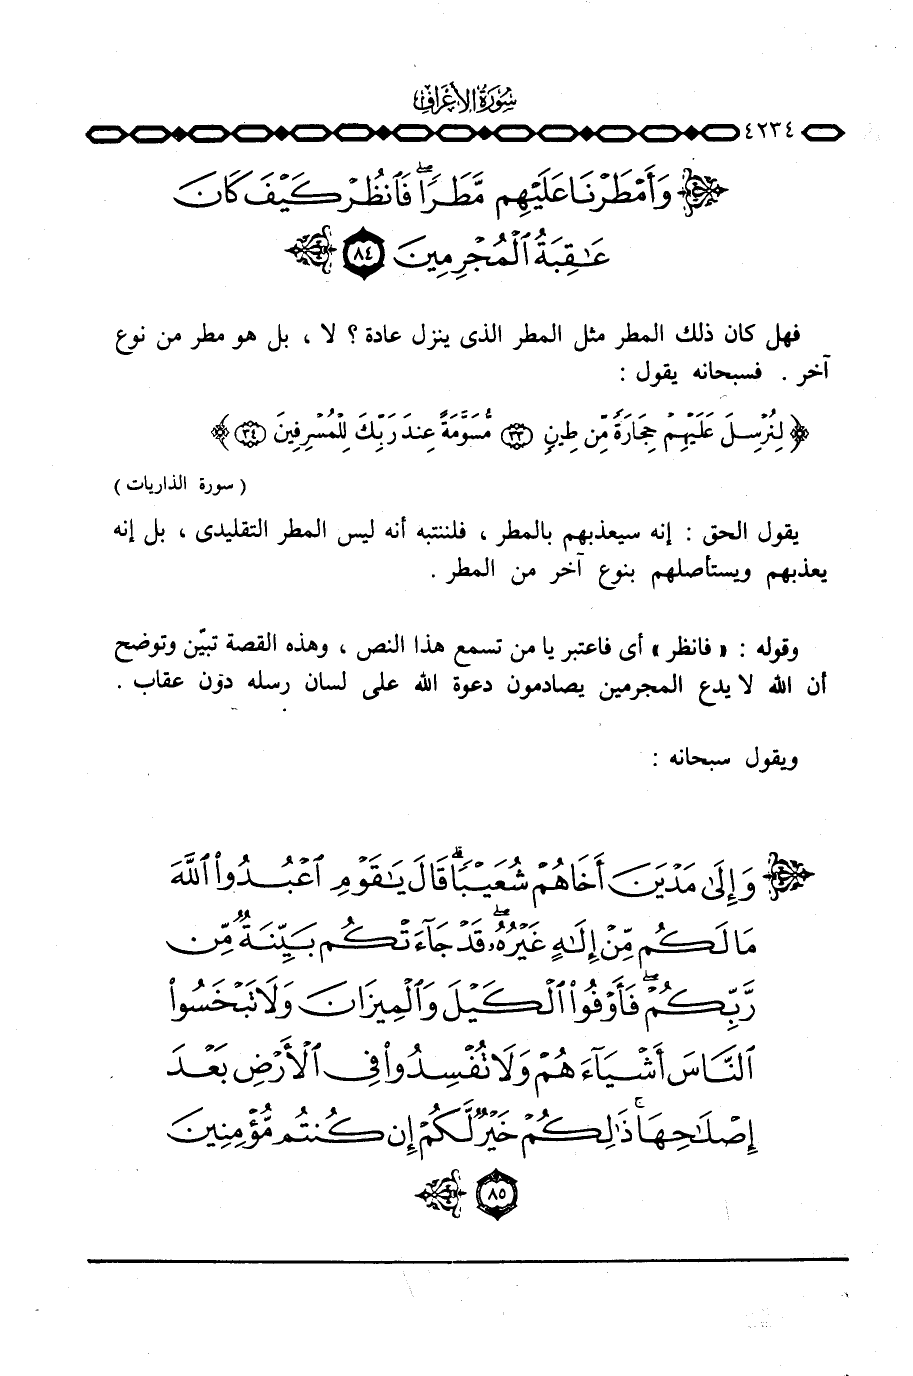 سُورَةُ الأَعْرَافِ
٤٢٣٤
وَأَمْطَرْنَا عَلَيْهِم مَّطَرًا ۖ فَانظُرْ كَيْفَ كَانَ
عَٰقِبَةُ ٱلْمُجْرِمِينَ ٨٤
فهل كان ذلك المطر مثل المطر الذى ينزل عادة ؟ لا ، بل هو مطر من نوع
آخر . فسبحانه يقول :
﴿ لِنُرْسِلَ عَلَيْهِمْ حِجَارَةً مِّن طِينٍ ٣٣ مُّسَوَّمَةً عِندَ رَبِّكَ لِلْمُسْرِفِينَ ٣٤ ﴾
( سورة الذاريات )
يقول الحق : إنه سيعذبهم بالمطر ، فلننتبه أنه ليس المطر التقليدى ، بل إنه
يعذبهم ويستأصلهم بنوع آخر من المطر .
وقوله : « فانظر » أى فاعتبر يا من تسمع هذا النص ، وهذه القصة تبيّن وتوضح
أن الله لا يدع المجرمين يصادمون دعوة الله على لسان رسله دون عقاب .
ويقول سبحانه :
وَإِلَىٰ مَدْيَنَ أَخَاهُمْ شُعَيْبًا ۗ قَالَ يَٰقَوْمِ ٱعْبُدُوا۟ ٱللَّهَ
مَا لَكُم مِّنْ إِلَٰهٍ غَيْرُهُۥ ۖ قَدْ جَآءَتْكُم بَيِّنَةٌ مِّن
رَّبِّكُمْ ۖ فَأَوْفُوا۟ ٱلْكَيْلَ وَٱلْمِيزَانَ وَلَا تَبْخَسُوا۟
ٱلنَّاسَ أَشْيَآءَهُمْ وَلَا تُفْسِدُوا۟ فِى ٱلْأَرْضِ بَعْدَ
إِصْلَٰحِهَا ۚ ذَٰلِكُمْ خَيْرٌ لَّكُمْ إِن كُنتُم مُّؤْمِنِينَ
٨٥